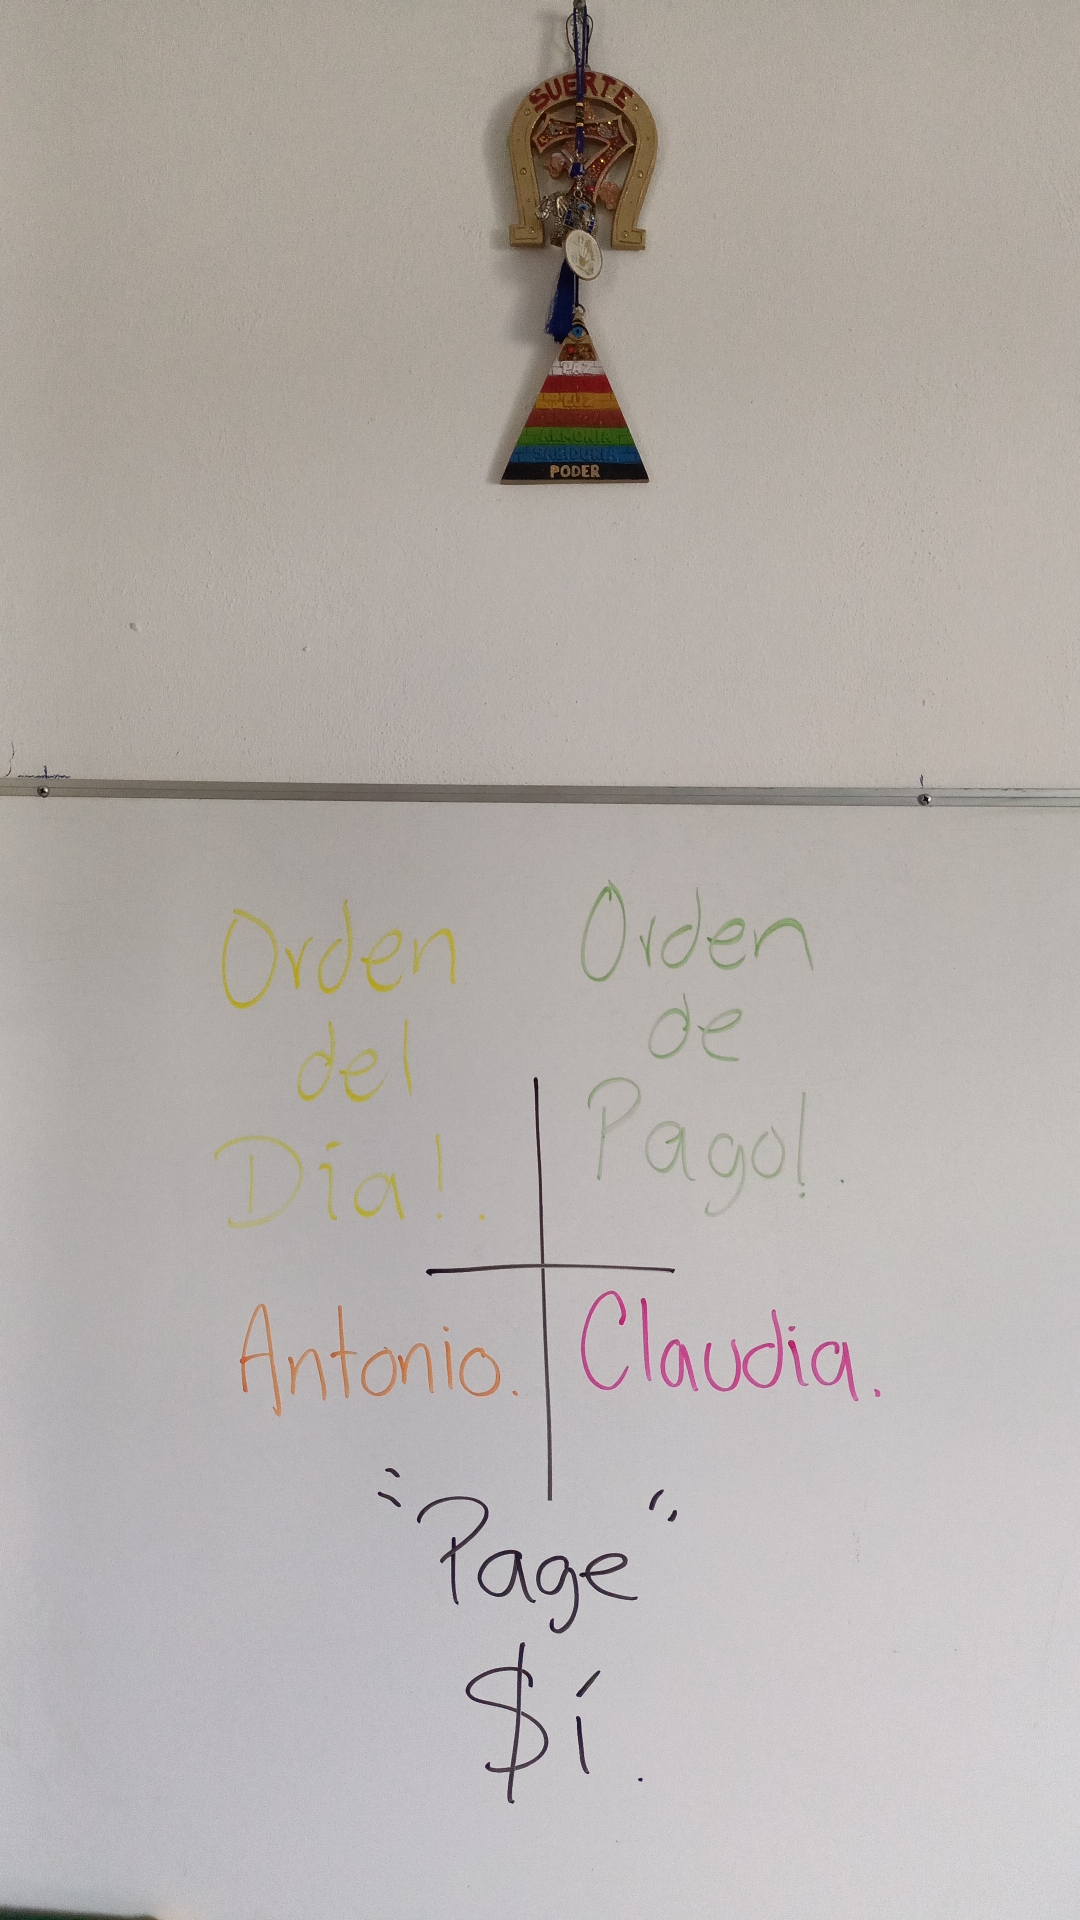 SUERTE
7
PAZ
LUZ
ARMONIA
SABIDURIA
PODER
Orden
del
Día!.
Orden
de
Pago!.
Antonio.
Claudia.
"Page"
$í.